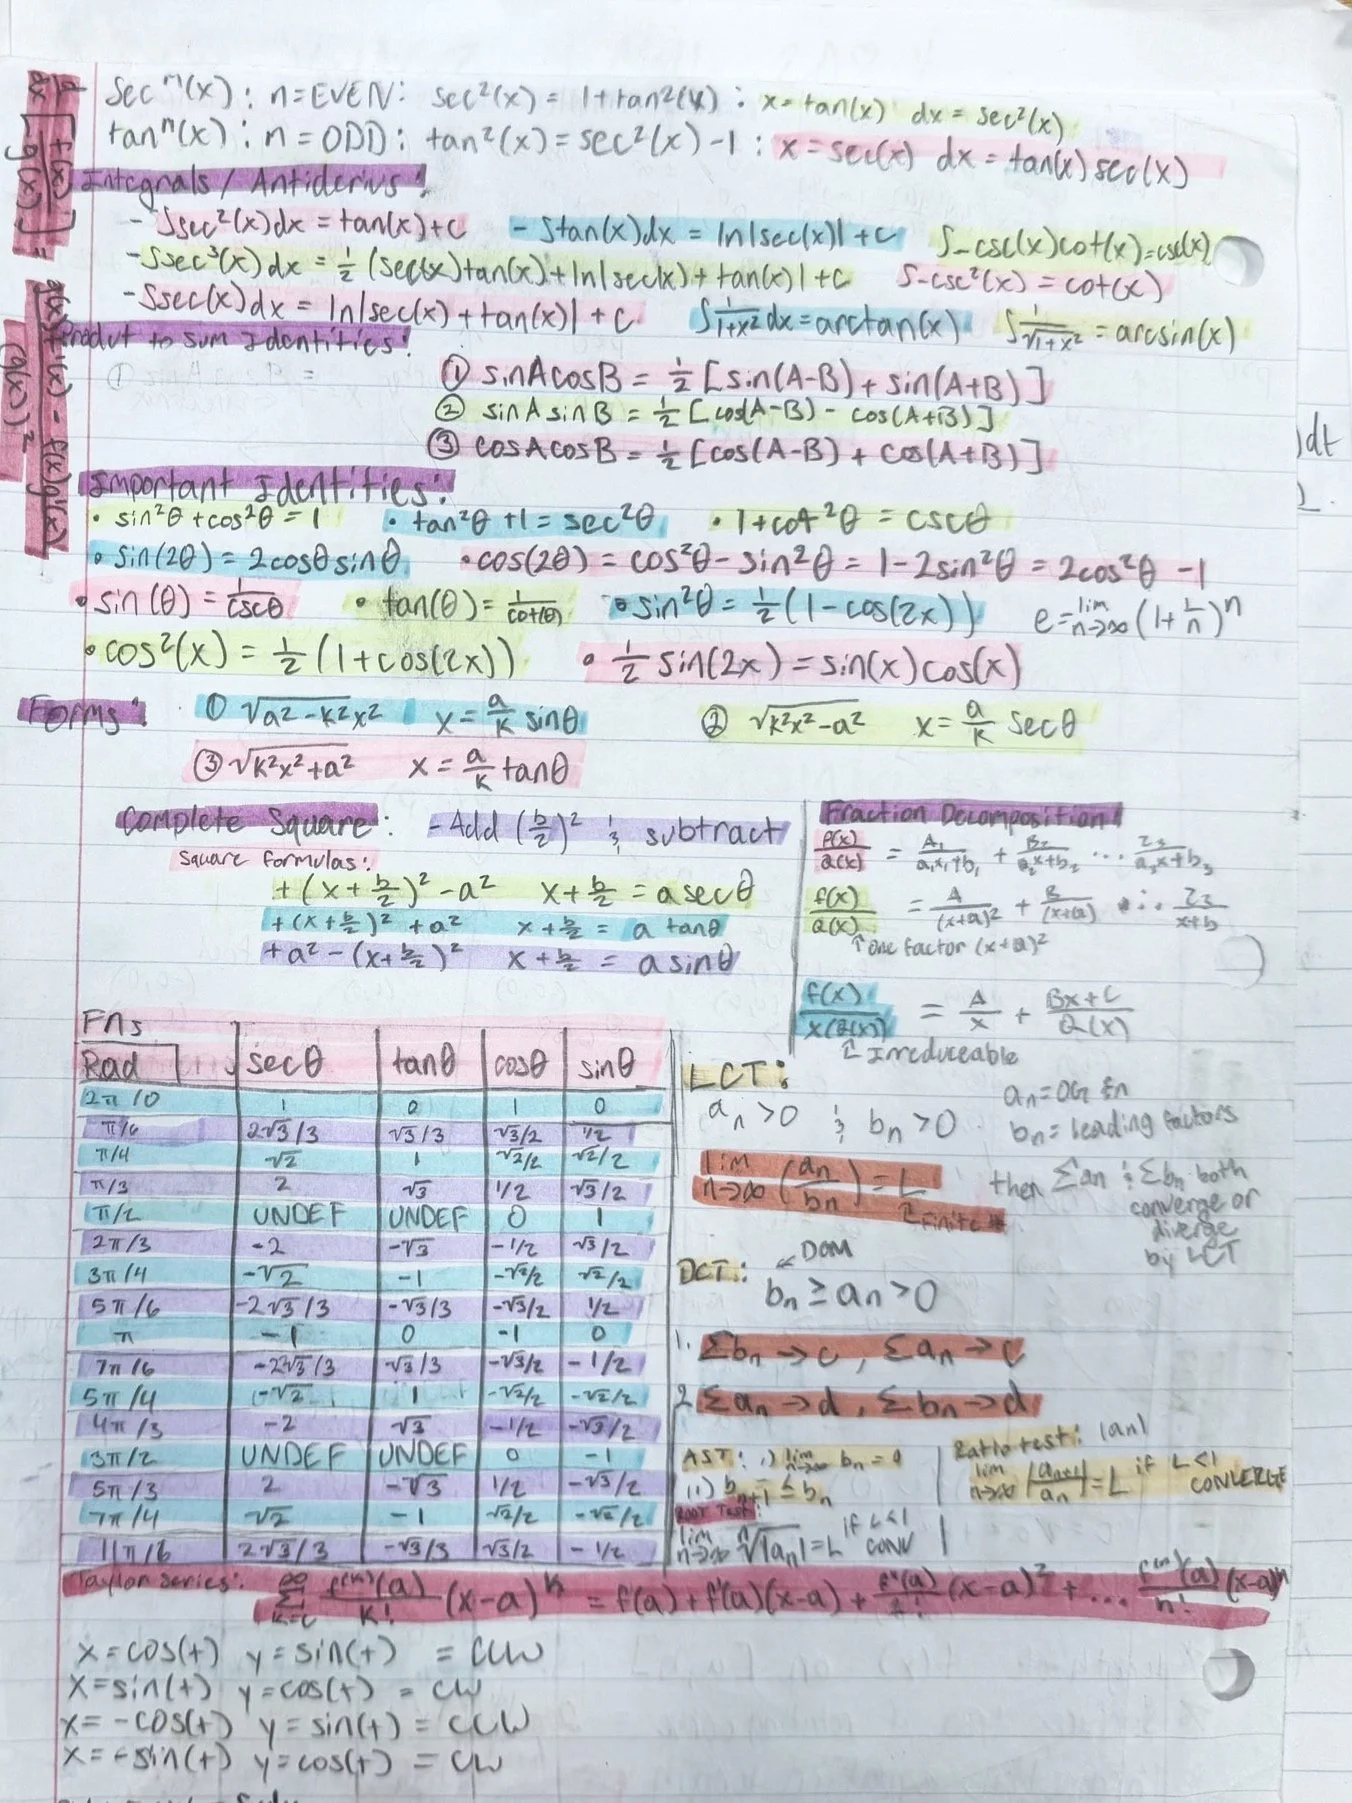 secⁿ(x): n=EVEN: sec²(x) = 1+tan²(x) : x=tan(x) dx = sec²(x)
tanⁿ(x): n=ODD: tan²(x)=sec²(x)-1 : x=sec(x) dx=tan(x)sec(x)
d/dx [f(x)/g(x)] = g(x)f'(x) - f(x)g'(x) / (g(x))²
Integrals / Antiderivs:
- ∫sec²(x)dx = tan(x)+C - ∫tan(x)dx = ln|sec(x)|+C ∫-csc(x)cot(x)=csc(x)
- ∫sec³(x)dx = 1/2 (sec(x)tan(x)+ln|sec(x)+tan(x)|+C ∫-csc²(x) = cot(x)
- ∫sec(x)dx = ln|sec(x)+tan(x)|+C ∫1/1+x² dx=arctan(x) ∫1/√1+x² = arcsin(x)
Product to sum Identities:
① sinAcosB = 1/2 [sin(A-B)+sin(A+B)]
② sinAsinB = 1/2 [cos(A-B) - cos(A+B)]
③ cosAcosB = 1/2 [cos(A-B) + cos(A+B)]
)dt
Important Identities:
• sin²θ+cos²θ=1 • tan²θ+1=sec²θ • 1+cot²θ = cscθ
• sin(2θ)=2cosθsinθ • cos(2θ) = cos²θ-sin²θ = 1-2sin²θ = 2cos²θ-1
• sin(θ)=1/cscθ • tan(θ)=1/cot(θ) • sin²θ=1/2(1-cos(2x)) e=lim n→∞ (1+1/n)ⁿ
• cos²(x)=1/2(1+cos(2x)) • 1/2 sin(2x)=sin(x)cos(x)
Forms: ① √a²-k²x² x=a/k sinθ ② √k²x²-a² x=a/k secθ
③ √k²x²+a² x=a/k tanθ
Complete Square: - Add (b/2)² & subtract
Square formulas:
+(x+b/2)²-a² x+b/2=asecθ
+(x+b/2)²+a² x+b/2 = a tanθ
+a²-(x+b/2)² x+b/2 = asinθ
Fraction Decomposition:
P(x)/Q(x) = A₁/a₁x₁+b₁ + B₂/a₂x+b₂ ... Z₃/a₃x+b₃
f(x)/Q(x) = A/(x+a)² + B/(x+a) ... Z₃/x+b
↑ one factor (x+a)²
f(x)/x(Q(x)) = A/x + Bx+C/Q(x)
↑ Irreduceable
FNs
Rad secθ tanθ cosθ sinθ
2π/0 1 0 1 0
π/6 2√3/3 √3/3 √3/2 1/2
π/4 √2 1 √2/2 √2/2
π/3 2 √3 1/2 √3/2
π/2 UNDEF UNDEF 0 1
2π/3 -2 -√3 -1/2 √3/2
3π/4 -√2 -1 -√2/2 √2/2
5π/6 -2√3/3 -√3/3 -√3/2 1/2
π -1 0 -1 0
7π/6 -2√3/3 √3/3 -√3/2 -1/2
5π/4 -√2 1 -√2/2 -√2/2
4π/3 -2 √3 -1/2 -√3/2
3π/2 UNDEF UNDEF 0 -1
5π/3 2 -√3 1/2 -√3/2
7π/4 √2 -1 √2/2 -√2/2
11π/6 2√3/3 -√3/3 √3/2 -1/2
LCT:
aₙ>0 & bₙ>0
aₙ=OG fn
bₙ=leading factors
lim n→∞ (aₙ/bₙ)=L
↑ Finite #
then Σaₙ & Σbₙ both
converge or
diverge
by LCT
DCT: ↙DOM
bₙ≥aₙ>0
1. Σbₙ→c, Σaₙ→c
2. Σaₙ→d, Σbₙ→d
AST: i) lim n→∞ bₙ=0
ii) bₙ₊₁≤bₙ
Ratio test: |aₙ|
lim n→∞ |aₙ₊₁/aₙ|=L if L<1
CONVERGE
Root Test:
lim n→∞ ⁿ√|aₙ|=L if L<1
conv
Taylor series: ∞ Σ k=c f⁽ᵏ⁾(a)/k! (x-a)ᵏ = f(a)+f'(a)(x-a)+f''(a)/2! (x-a)²+... f⁽ⁿ⁾(a)/n! (x-a)ⁿ
x=cos(t) y=sin(t) = CCW
x=sin(t) y=cos(t) = CW
x=-cos(t) y=sin(t) = CCW
x=-sin(t) y=cos(t) = CW